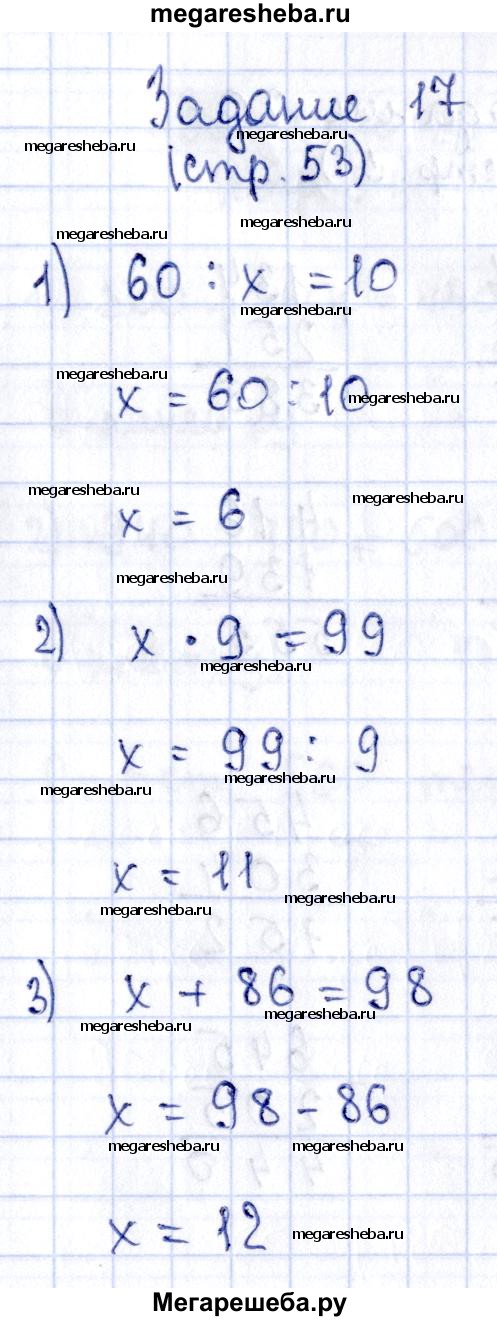 megaresheba.ru
Задание 17
megaresheba.ru
megaresheba.ru
(стр. 53)
megaresheba.ru
megaresheba.ru
1) 60 : x = 10
megaresheba.ru
megaresheba.ru
x = 60 : 10
megaresheba.ru
megaresheba.ru
megaresheba.ru
x = 6
megaresheba.ru
2) x · 9 = 99
megaresheba.ru
x = 99 : 9
megaresheba.ru
megaresheba.ru
x = 11
megaresheba.ru
megaresheba.ru
3) x + 86 = 98
megaresheba.ru
megaresheba.ru
x = 98 - 86
megaresheba.ru
megaresheba.ru
x = 12
megaresheba.ru
Мегарешеба.ру